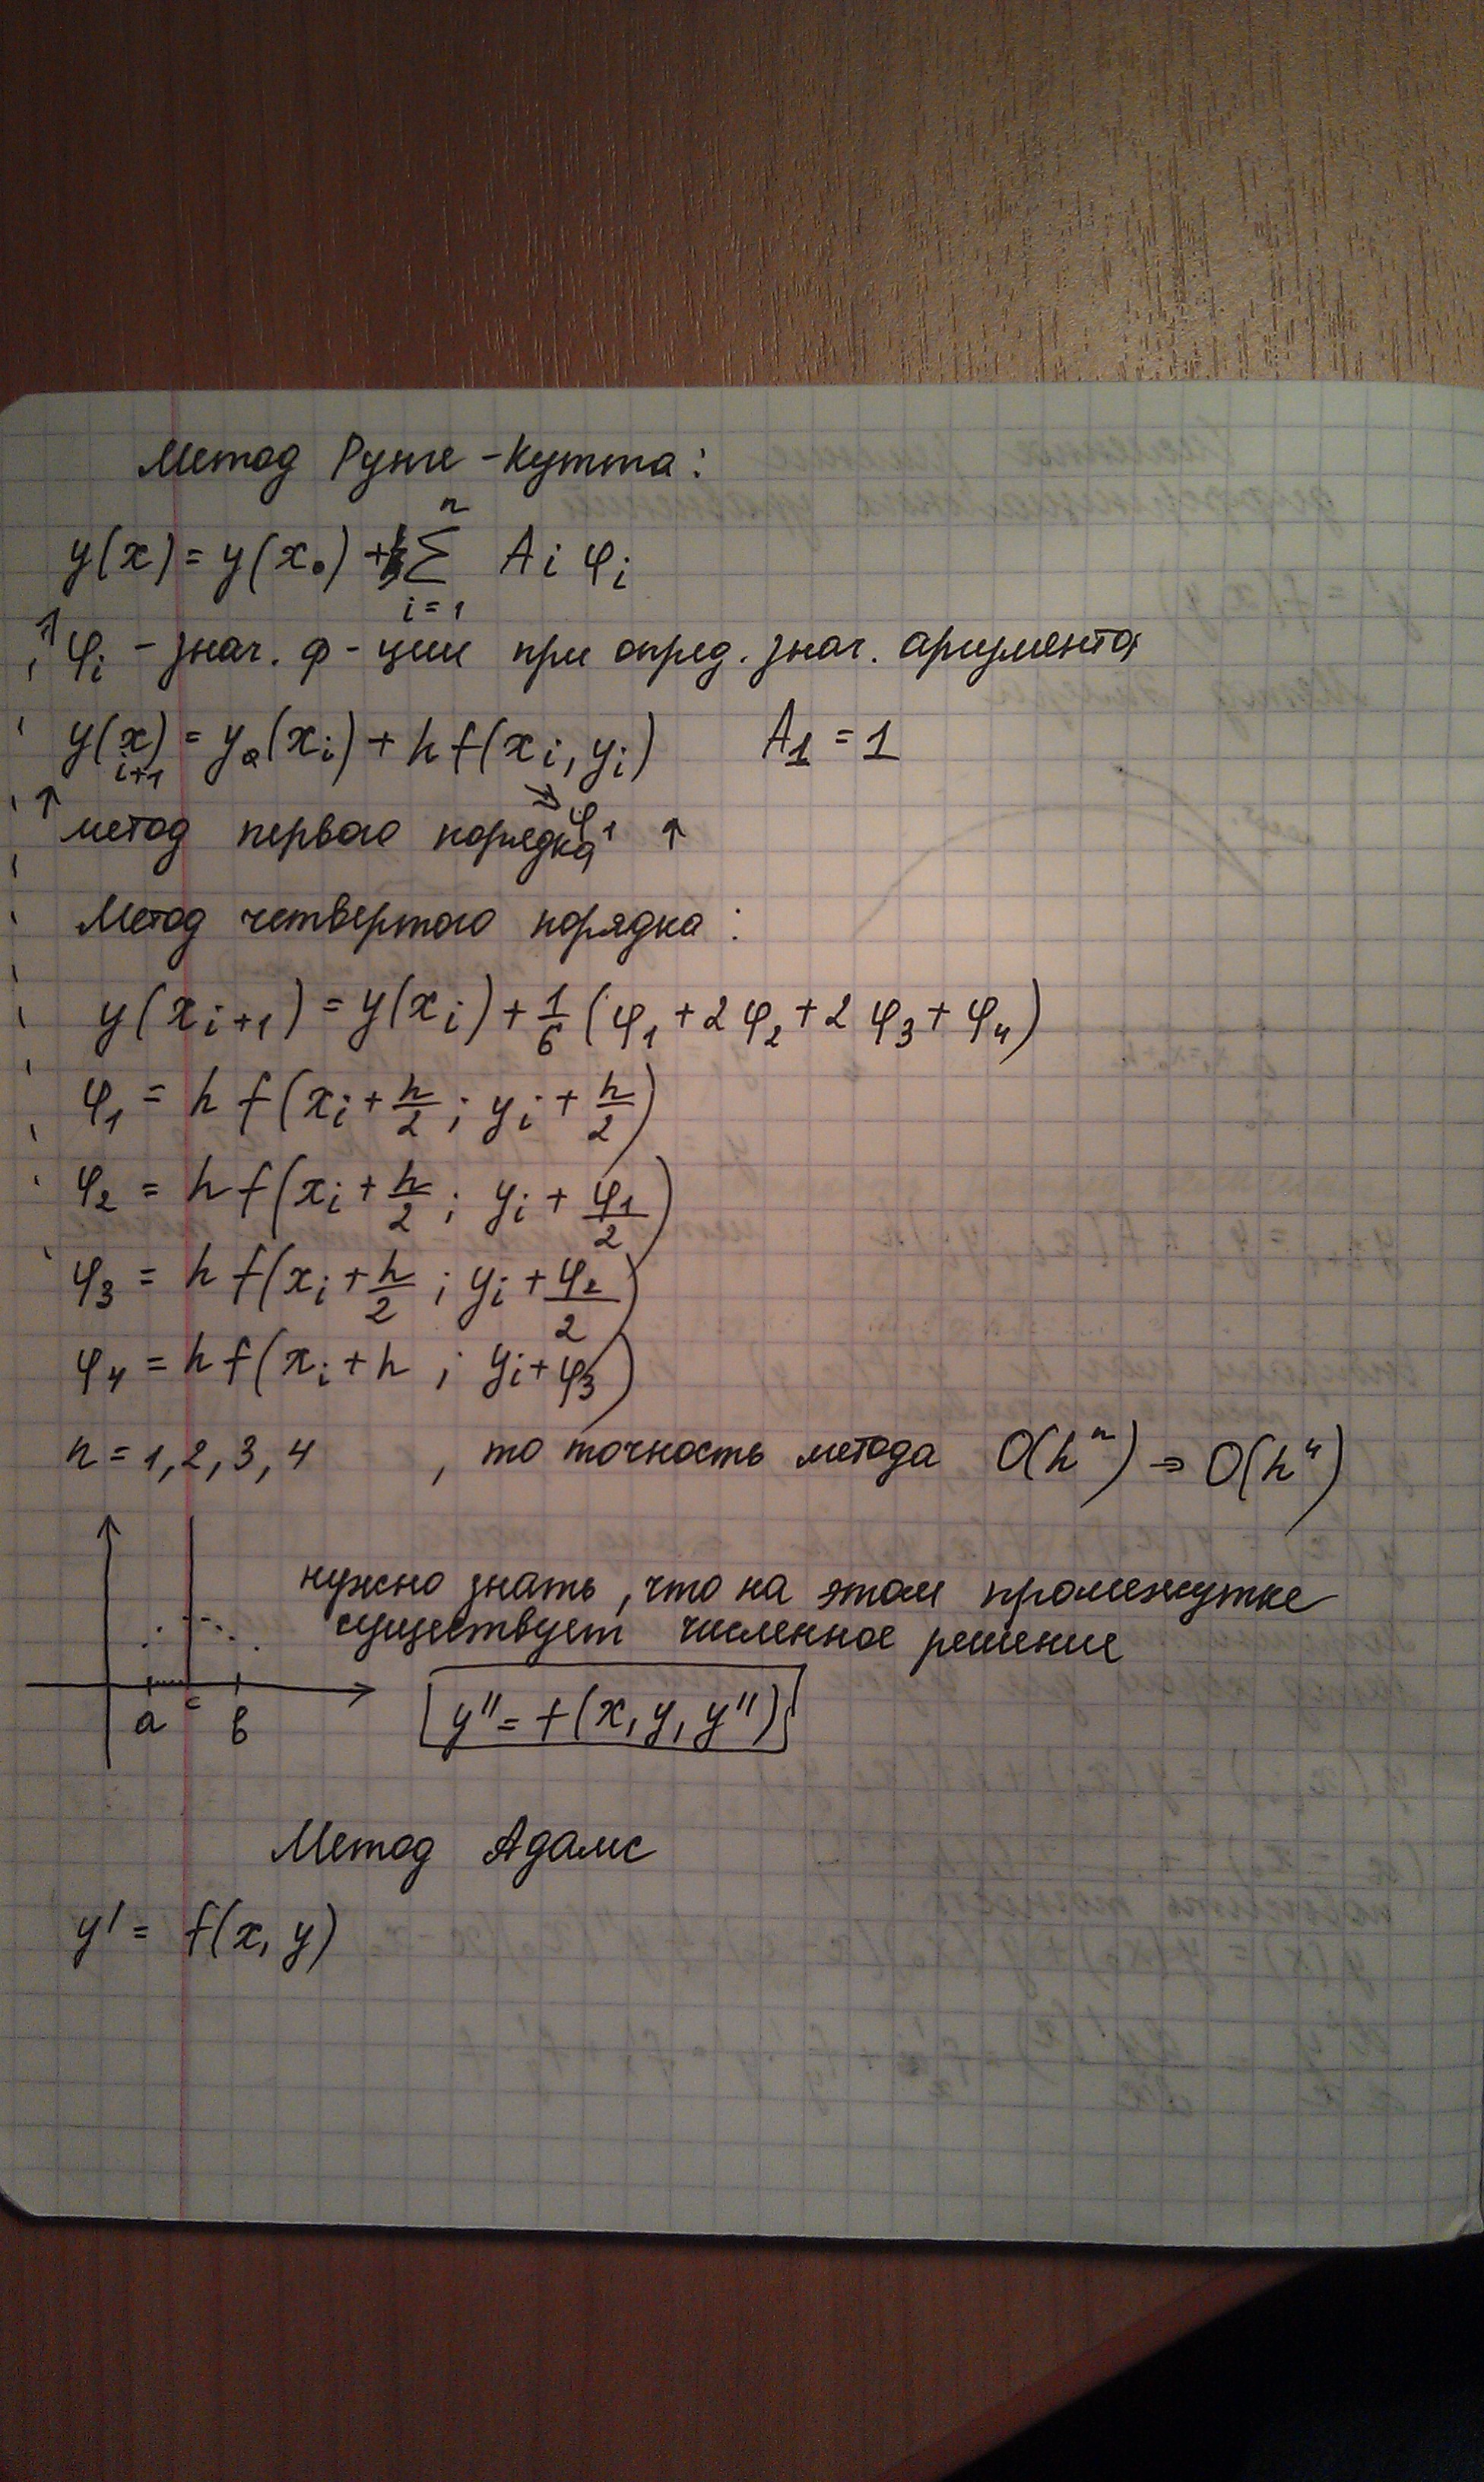 Метод Рунге-Кутта:
y(x) = y(x₀) + ∑ⁿᵢ₌₁ Aᵢ φᵢ
φᵢ - знач. ф-ции при опред. знач. аргумента
y(xᵢ₊₁) = y₀(xᵢ) + h f(xᵢ, yᵢ) A₁ = 1
φ₁
метод первого порядка
Метод четвертого порядка:
y(xᵢ₊₁) = y(xᵢ) + 1/6 (φ₁ + 2φ₂ + 2φ₃ + φ₄)
φ₁ = h f(xᵢ + h/2; yᵢ + h/2)
φ₂ = h f(xᵢ + h/2; yᵢ + φ₁/2)
φ₃ = h f(xᵢ + h/2; yᵢ + φ₂/2)
φ₄ = h f(xᵢ + h; yᵢ + φ₃)
n = 1, 2, 3, 4 , то точность метода O(hⁿ) ⇒ O(h⁴)
нужно знать, что на этом промежутке
существует численное решение
a c b
y'' = f(x, y, y'')
Метод Адамс
y' = f(x, y)